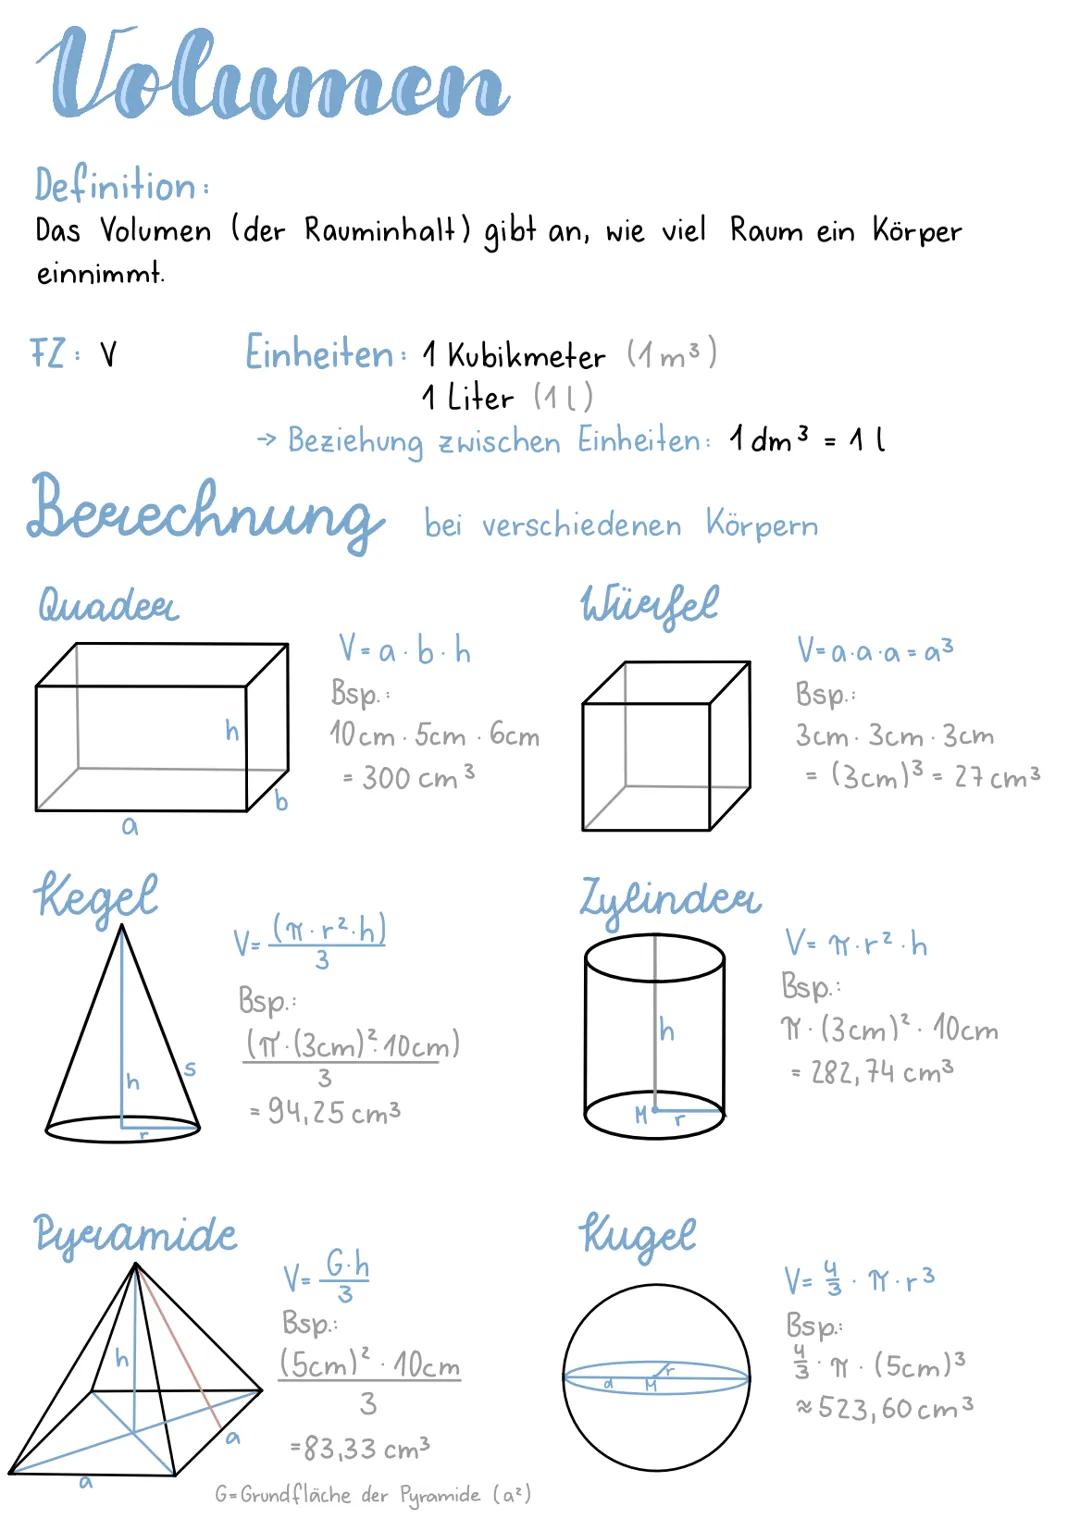 Volumen
Definition:
Das Volumen (der Rauminhalt) gibt an, wie viel Raum ein Körper
einnimmt.
FZ: V
Einheiten: 1 Kubikmeter (1 m³)
1 Liter (1 l)
→ Beziehung zwischen Einheiten: 1 dm³ = 1 l
Berechnung bei verschiedenen Körpern
Quader
V= a · b · h
Bsp.:
10cm · 5cm · 6cm
= 300 cm³
h
b
a
Würfel
V= a·a·a = a³
Bsp.:
3cm · 3cm · 3cm
= (3cm)³ = 27 cm³
Kegel
V= (π · r² · h)
3
Bsp.:
(π · (3cm)² · 10cm)
3
= 94,25 cm³
h
s
r
Zylinder
V= π · r² · h
Bsp.:
π · (3cm)² · 10cm
= 282,74 cm³
h
M r
Pyramide
V= G·h
3
Bsp.:
(5cm)² · 10cm
3
=83,33 cm³
h
a
a
G=Grundfläche der Pyramide (a²)
Kugel
V= 4/3 · π · r³
Bsp.:
4/3 · π · (5cm)³
≈ 523,60 cm³
r
d M